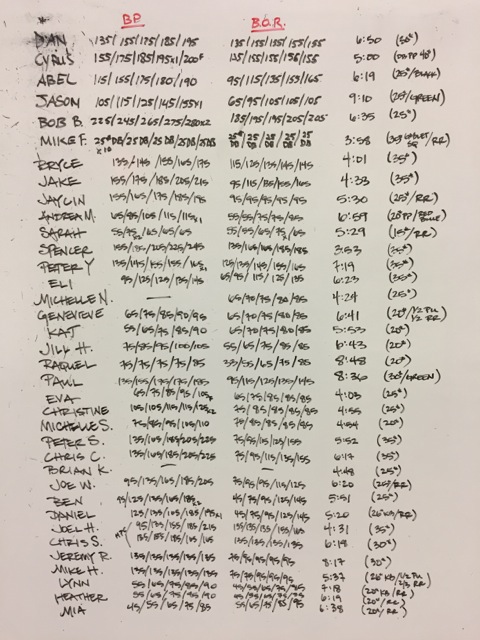 B.P. B.O.R.
DAN 135/155/175/185/195 135/155/155/155/155 6:50
CYRUS 155/175/185/195x1/200F 135/155/155/155/155 5:00
ABEL 115/155/175/180/190 95/115/135/153/165 6:19 (25#/BLACK)
JASON 105/115/125/145/155x1 65/95/105/105/105 9:10 (25#/GREEN)
BOB B. 225/245/265/275/280x2 185/195/195/205/205 6:35 (25#)
MIKE F. 25#DB/25DB/25DB/25DB/25DB 25#DB/25DB/25DB/25DB/25DB 3:58
x10
BRYCE 135/145/155/165/175 115/125/135/145/145 4:01 (35#)
JAKE 155/175/185/205/215 95/115/135/155/165 4:33 (35#)
JAYLIN 155/165/175/185/195 95/95/95/95/95 5:30 (25#/RR)
ANDREA M. 65/95/105/115/115x1 55/55/75/75/85 6:59
SARAH 55/55/65/65/65 5:29 (15#/RR)
SPENCER 135/165/165/185/185 3:53 (75#)
PETER Y 135/145/155/155/165 125/135/145/155/165 7:19 (35#)
ELI 95/125/125/135/145 65/95/115/125/135 6:23 (35#)
MICHELLE N. — 65/70/75/80/85 4:24 (25#)
GENEVIEVE 65/75/85/90/95 65/70/75/80/85 6:41
KAT 55/65/75/85/90 65/70/75/80/85 5:53 (20#)
JILL H. 75/85/95/100/105 55/65/75/85/85 6:43 (20#)
RAQUEL 75/75/75/75/85 35/55/65/75/85 8:48 (20#)
PAUL 135/155/175/175/185 95/115/125/135/145 8:36 (30#/GREEN)
EVA 65/75/85/95/105F 65/75/85/85/85 4:03 (25#)
CHRISTINE 105/105/115/115/125x2 75/85/85/95/85 4:55 (25#)
MICHELLE S. 75/85/95/105/110 75/85/85/95/85 4:54 (20#)
PETER S. 135/165/185/205/225 75/95/115/125/155 5:52 (35#)
CHRIS C. 135/165/185/205/225 75/95/115/135/155 6:17 (35#)
BRIAN K. — — 4:48 (25#)
JOE W. 95/135/165/185/205 75/95/95/115/125 6:20 (25#/RR)
BEN 95/125/135/165/185x2 45/75/95/125/145 5:51 (25#)
DANIEL 125/135/165/185/195x1 45/75/95/125/145 5:20 (26#KB/RR)
JOEL H. 95/135/155/185/215 135/135/135/155/165 4:31 (35#)
CHRIS S. 135/135/155/155/155 6:18 (30#)
JEREMY R. 135/135/135/135/185 75/95/95/95/95 8:17 (30#)
MIKE H. 135/135/135/135/135 75/75/95/95/95 5:37
LYNN 55/65/75/85/90 7:18
HEATHER 55/65/75/90/95 6:19 (20#KB/RR)
MIA 45/55/65/75/85 55/65/75/85/95 6:38 (20#/RR)